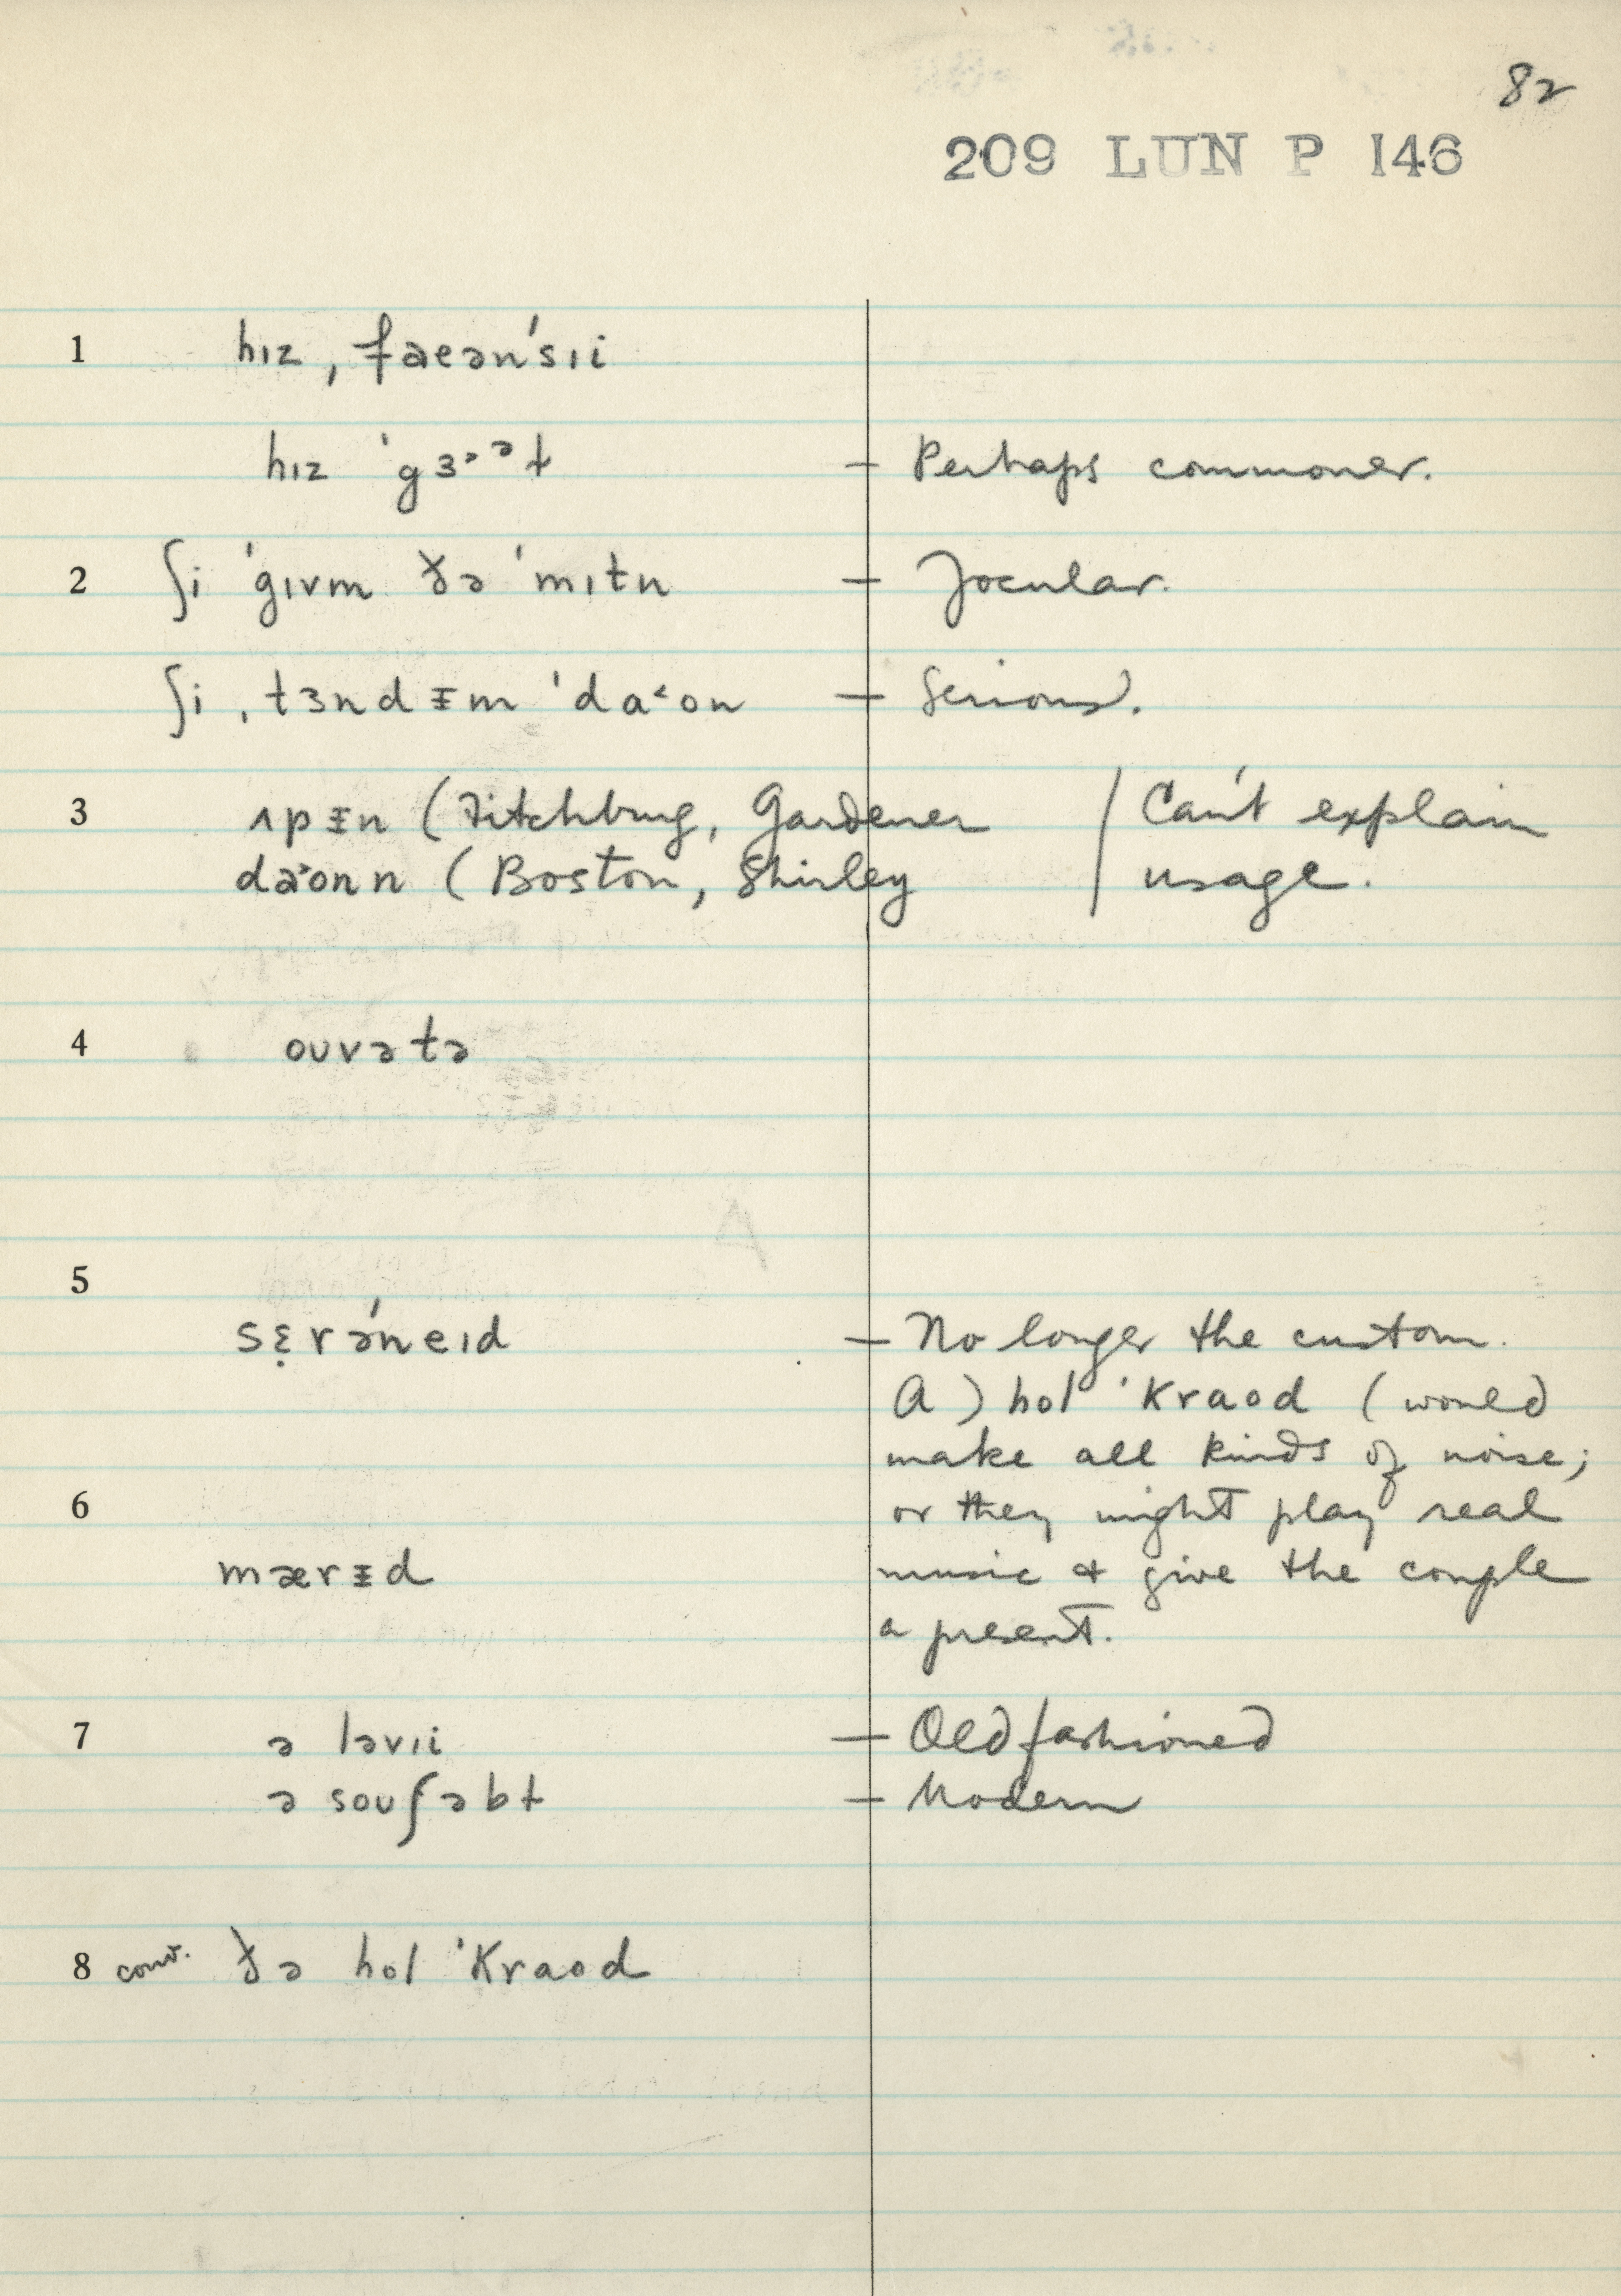 82
209 LUN P 146
1 hɪz ˌfæənˈsɪi
hɪz ˈgɜ˞ᵊt — Perhaps commoner.
2 ʃi ˈgɪvm ðə ˈmɪtn — Jocular.
ʃi ˌtɜnd ᵻm ˈda˂on — Serious.
3 ʌpᵻn (Fitchburg, Gardener / Can't explain
daˑonn (Boston, Shirley / usage.
4 ouvətə
5
sɛ̣rəˈneɪd — No longer the custom.
A) hol ˈkraod (would
make all kinds of noise;
6 or they might play real
mærᵻd music & give the couple
a present.
7 ə ləvɪi — Old fashioned
ə souʃəbt — Modern
8 conv. ðə hol ˈkraod